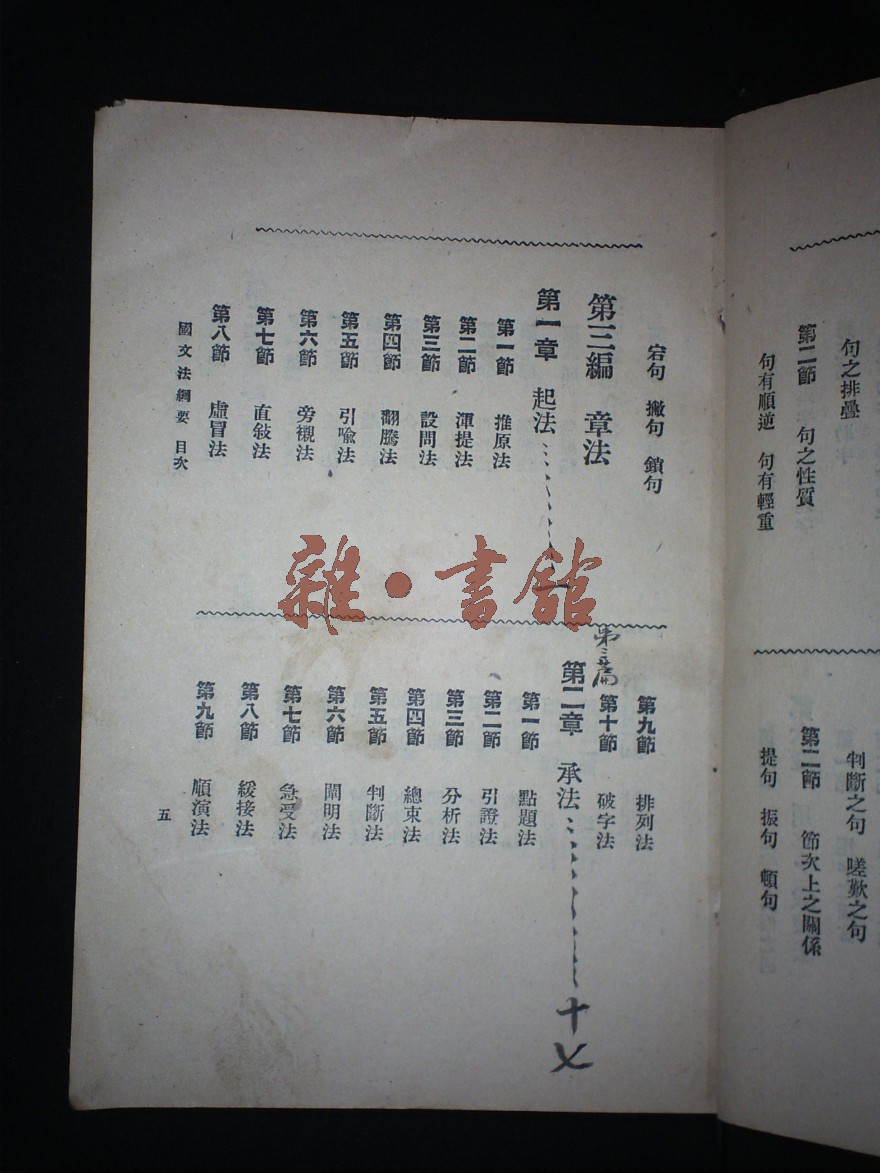 句之排疊
第二節 句之性質
句有順逆 句有輕重
判斷之句 嗟歎之句
第二節 節次上之關係
提句 振句 頓句
宕句 撇句 鎖句
第三編 章法
第一章 起法
一
第一節 推原法
第二節 渾提法
第三節 設問法
第四節 翻騰法
第五節 引喩法
第六節 旁襯法
第七節 直敍法
第八節 虛冒法
第九節 排列法
第十節 破字法
第三篇
第二章 承法
十七
第一節 點題法
第二節 引證法
第三節 分析法
第四節 總束法
第五節 判斷法
第六節 闡明法
第七節 急受法
第八節 緩接法
第九節 順演法
國文法綱要 目次
五
雜·書館